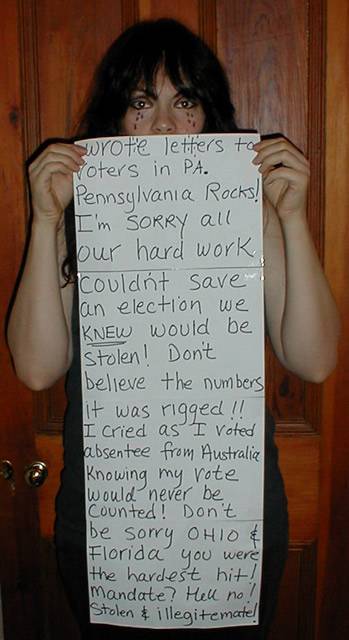 wrote letters to
voters in PA.
Pennsylvania Rocks!
I'm SORRY all
our hard work
couldn't save
an election we
KNEW would be
stolen! Don't
believe the numbers
it was rigged!!
I cried as I voted
absentee from Australia
Knowing my vote
would never be
counted! Don't
be sorry OHIO &
Florida you were
the hardest hit!
Mandate? Hell no!
Stolen & illegitemate!